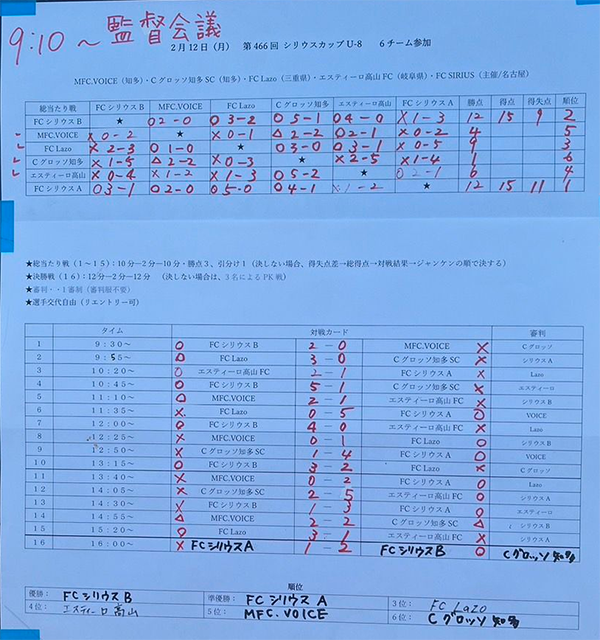 9:10～監督会議
2月12日（月） 第466回 シリウスカップU-8 6チーム参加
MFC.VOICE（知多）・Cグロッソ知多SC（知多）・FC Lazo（三重県）・エスティーロ高山FC（岐阜県）・FC SIRIUS（主催/名古屋）
総当たり戦 FCシリウスB MFC.VOICE FC Lazo Cグロッソ知多 エスティーロ高山 FCシリウスA 勝点 得点 得失点 順位
FCシリウスB ★ ○2-0 ○3-2 ○5-1 ○4-0 ×1-3 12 15 9 2
MFC.VOICE ×0-2 ★ ×0-1 △2-2 ○2-1 ×0-2 4 5
FC Lazo ×2-3 ○1-0 ★ ○3-0 ○3-1 ×0-5 9 3
Cグロッソ知多 ×1-5 △2-2 ×0-3 ★ ×2-5 ×1-4 1 6
エスティーロ高山 ×0-4 ×1-2 ×1-3 ○5-2 ★ ○2-1 6 4
FCシリウスA ○3-1 ○2-0 ○5-0 ○4-1 ×1-2 ★ 12 15 11 1
★総当たり戦（1～15）：10分―2分―10分・勝点3、引分け1（決しない場合、得失点差→総得点→対戦結果→ジャンケンの順で決する）
★決勝戦（16）：12分―2分―12分 （決しない場合は、3名によるPK戦）
★審判・・1審制（審判服不要）
★選手交代自由（リエントリー可）
タイム 対戦カード 審判
1 9：30～ ○ FCシリウスB 2-0 MFC.VOICE × Cグロッソ
2 9：55～ FC Lazo 3-0 Cグロッソ知多SC × シリウスA
3 10：20～ ○ エスティーロ高山FC 2-1 FCシリウスA × Lazo
4 10：45～ ○ FCシリウスB 5-1 Cグロッソ知多SC × エスティーロ
5 11：10～ MFC.VOICE 2-1 エスティーロ高山FC × シリウスB
6 11：35～ × FC Lazo 0-5 FCシリウスA ○ VOICE
7 12：00～ ○ FCシリウスB 4-0 エスティーロ高山FC × Lazo
8 12：25～ × MFC.VOICE 0-1 FC Lazo ○ シリウスB
9 12：50～ × Cグロッソ知多SC 1-4 FCシリウスA ○ VOICE
10 13：15～ ○ FCシリウスB 3-2 FC Lazo × Cグロッソ
11 13：40～ × MFC.VOICE 0-2 FCシリウスA ○ Lazo
12 14：05～ × Cグロッソ知多SC 2-5 エスティーロ高山FC ○ シリウスA
13 14：30～ × FCシリウスB 1-3 FCシリウスA ○ エスティーロ
14 14：55～ △ MFC.VOICE 2-2 Cグロッソ知多SC △ シリウスB
15 15：20～ ○ FC Lazo 3-1 エスティーロ高山FC × シリウスA
16 16：00～ × FCシリウスA 1-2 FCシリウスB ○ Cグロッソ知多
順位
優勝： FCシリウスB 準優勝： FCシリウスA 3位： FC Lazo
4位： エスティーロ高山 5位： MFC.VOICE 6位： Cグロッソ知多